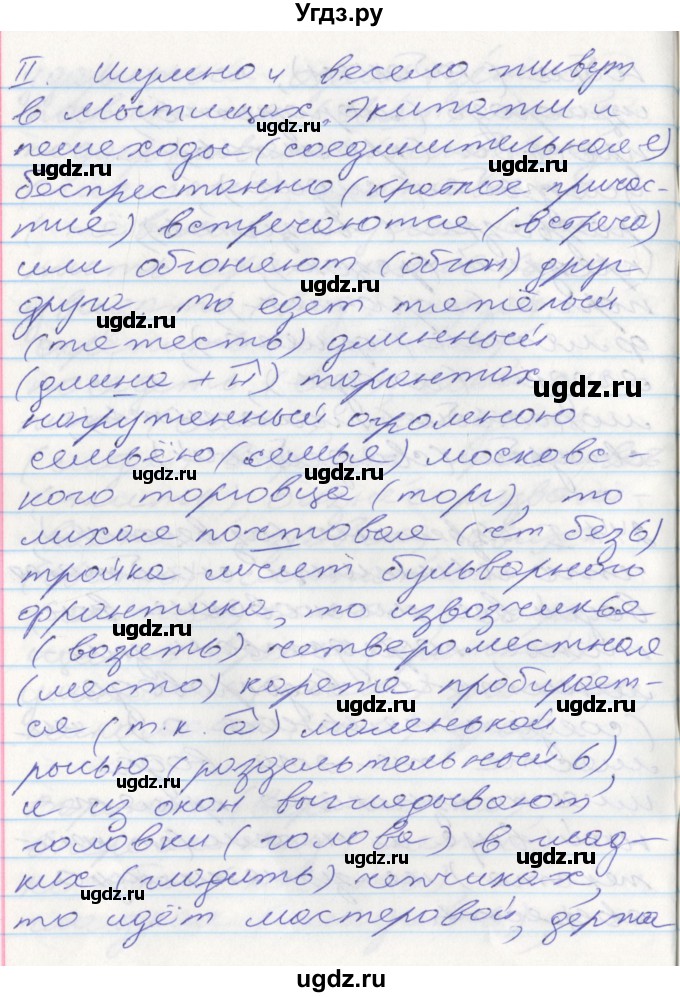 Угдз.ру
II. Шумно и весело живут
в Мытищах. Экипажи и
ugdz.ru
пешеходы (соединительная е)
ugdz.ru
ugdz.ru
беспрестанно (краткое причас-
тие) встречаются (встреча)
или обгоняют (обгон) друг
ugdz.ru
друга, то едет тяжёлый
ugdz.ru
(тяжесть) длинный
(длина + н) тарантах,
ugdz.ru
нагруженный огромною
семьёю (семья) московс-
ugdz.ru
ugdz.ru
кого торговца (торг), то
лихая почтовая (чт без ь)
ugdz.ru
тройка мчит бульварного
франтика, то извозчичья
ugdz.ru
(возить) четвероместная
(место) карета пробирает-
ся (т.к. а) маленькой
ugdz.ru
рысью (раздельтельный ь),
ugdz.ru
и из окон выглядывают
головки (голова) в глад-
ugdz.ru
ugdz.ru
ких (гладить) чепчиках,
ugdz.ru
то идёт мастеровой, держа
ugdz.ru